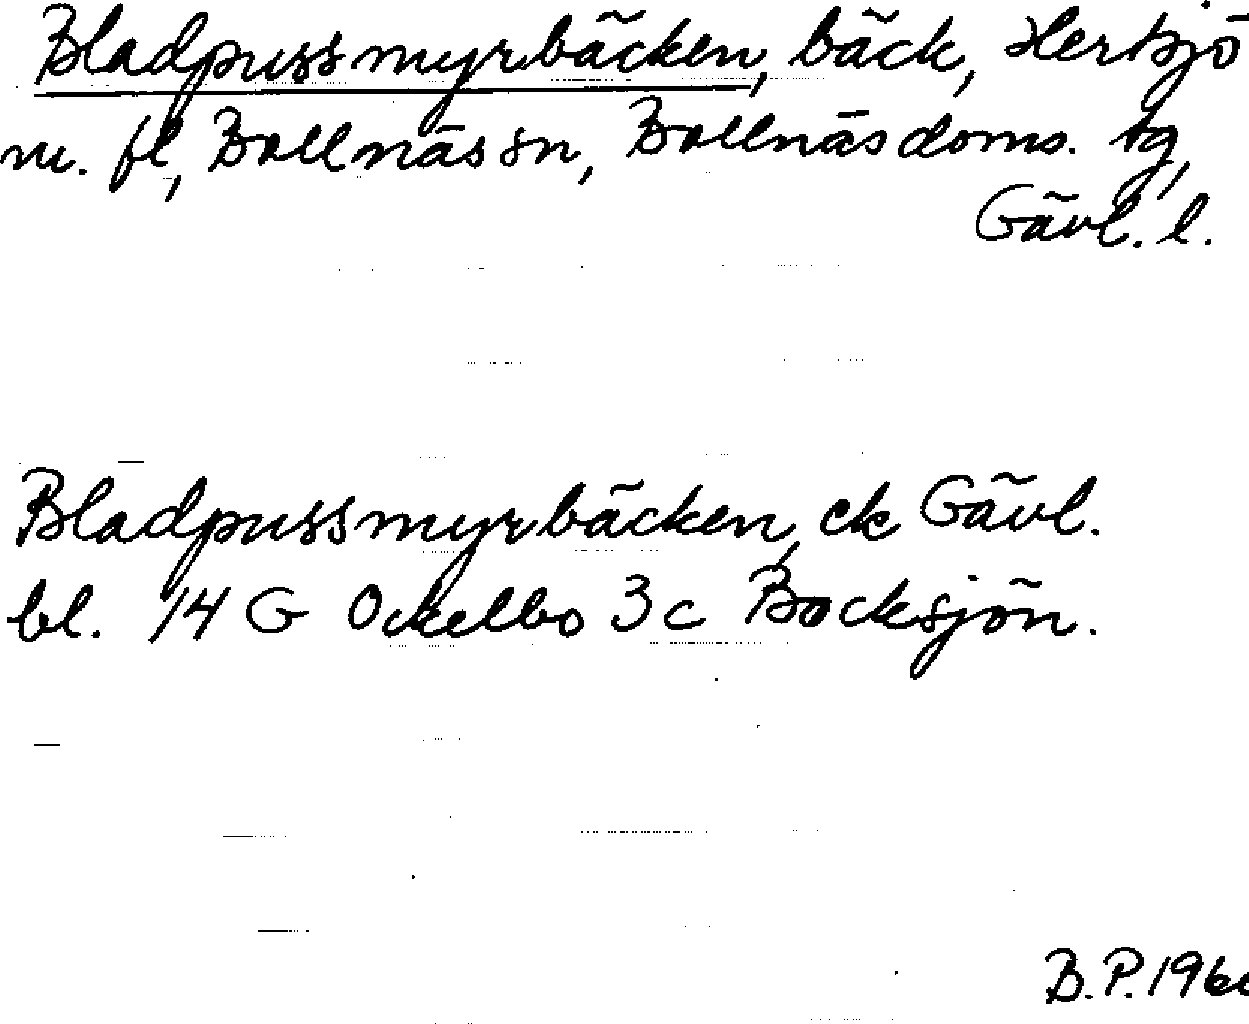 Bladpussmyrbäcken, bäck, Hertsjö
m. fl, Bollnäs sn, Bollnäs doms. tg,
Gävl. l.
Bladpussmyrbäcken, ek Gävl.
bl. 14 G Ockelbo 3c Bocksjön.
B.P.196